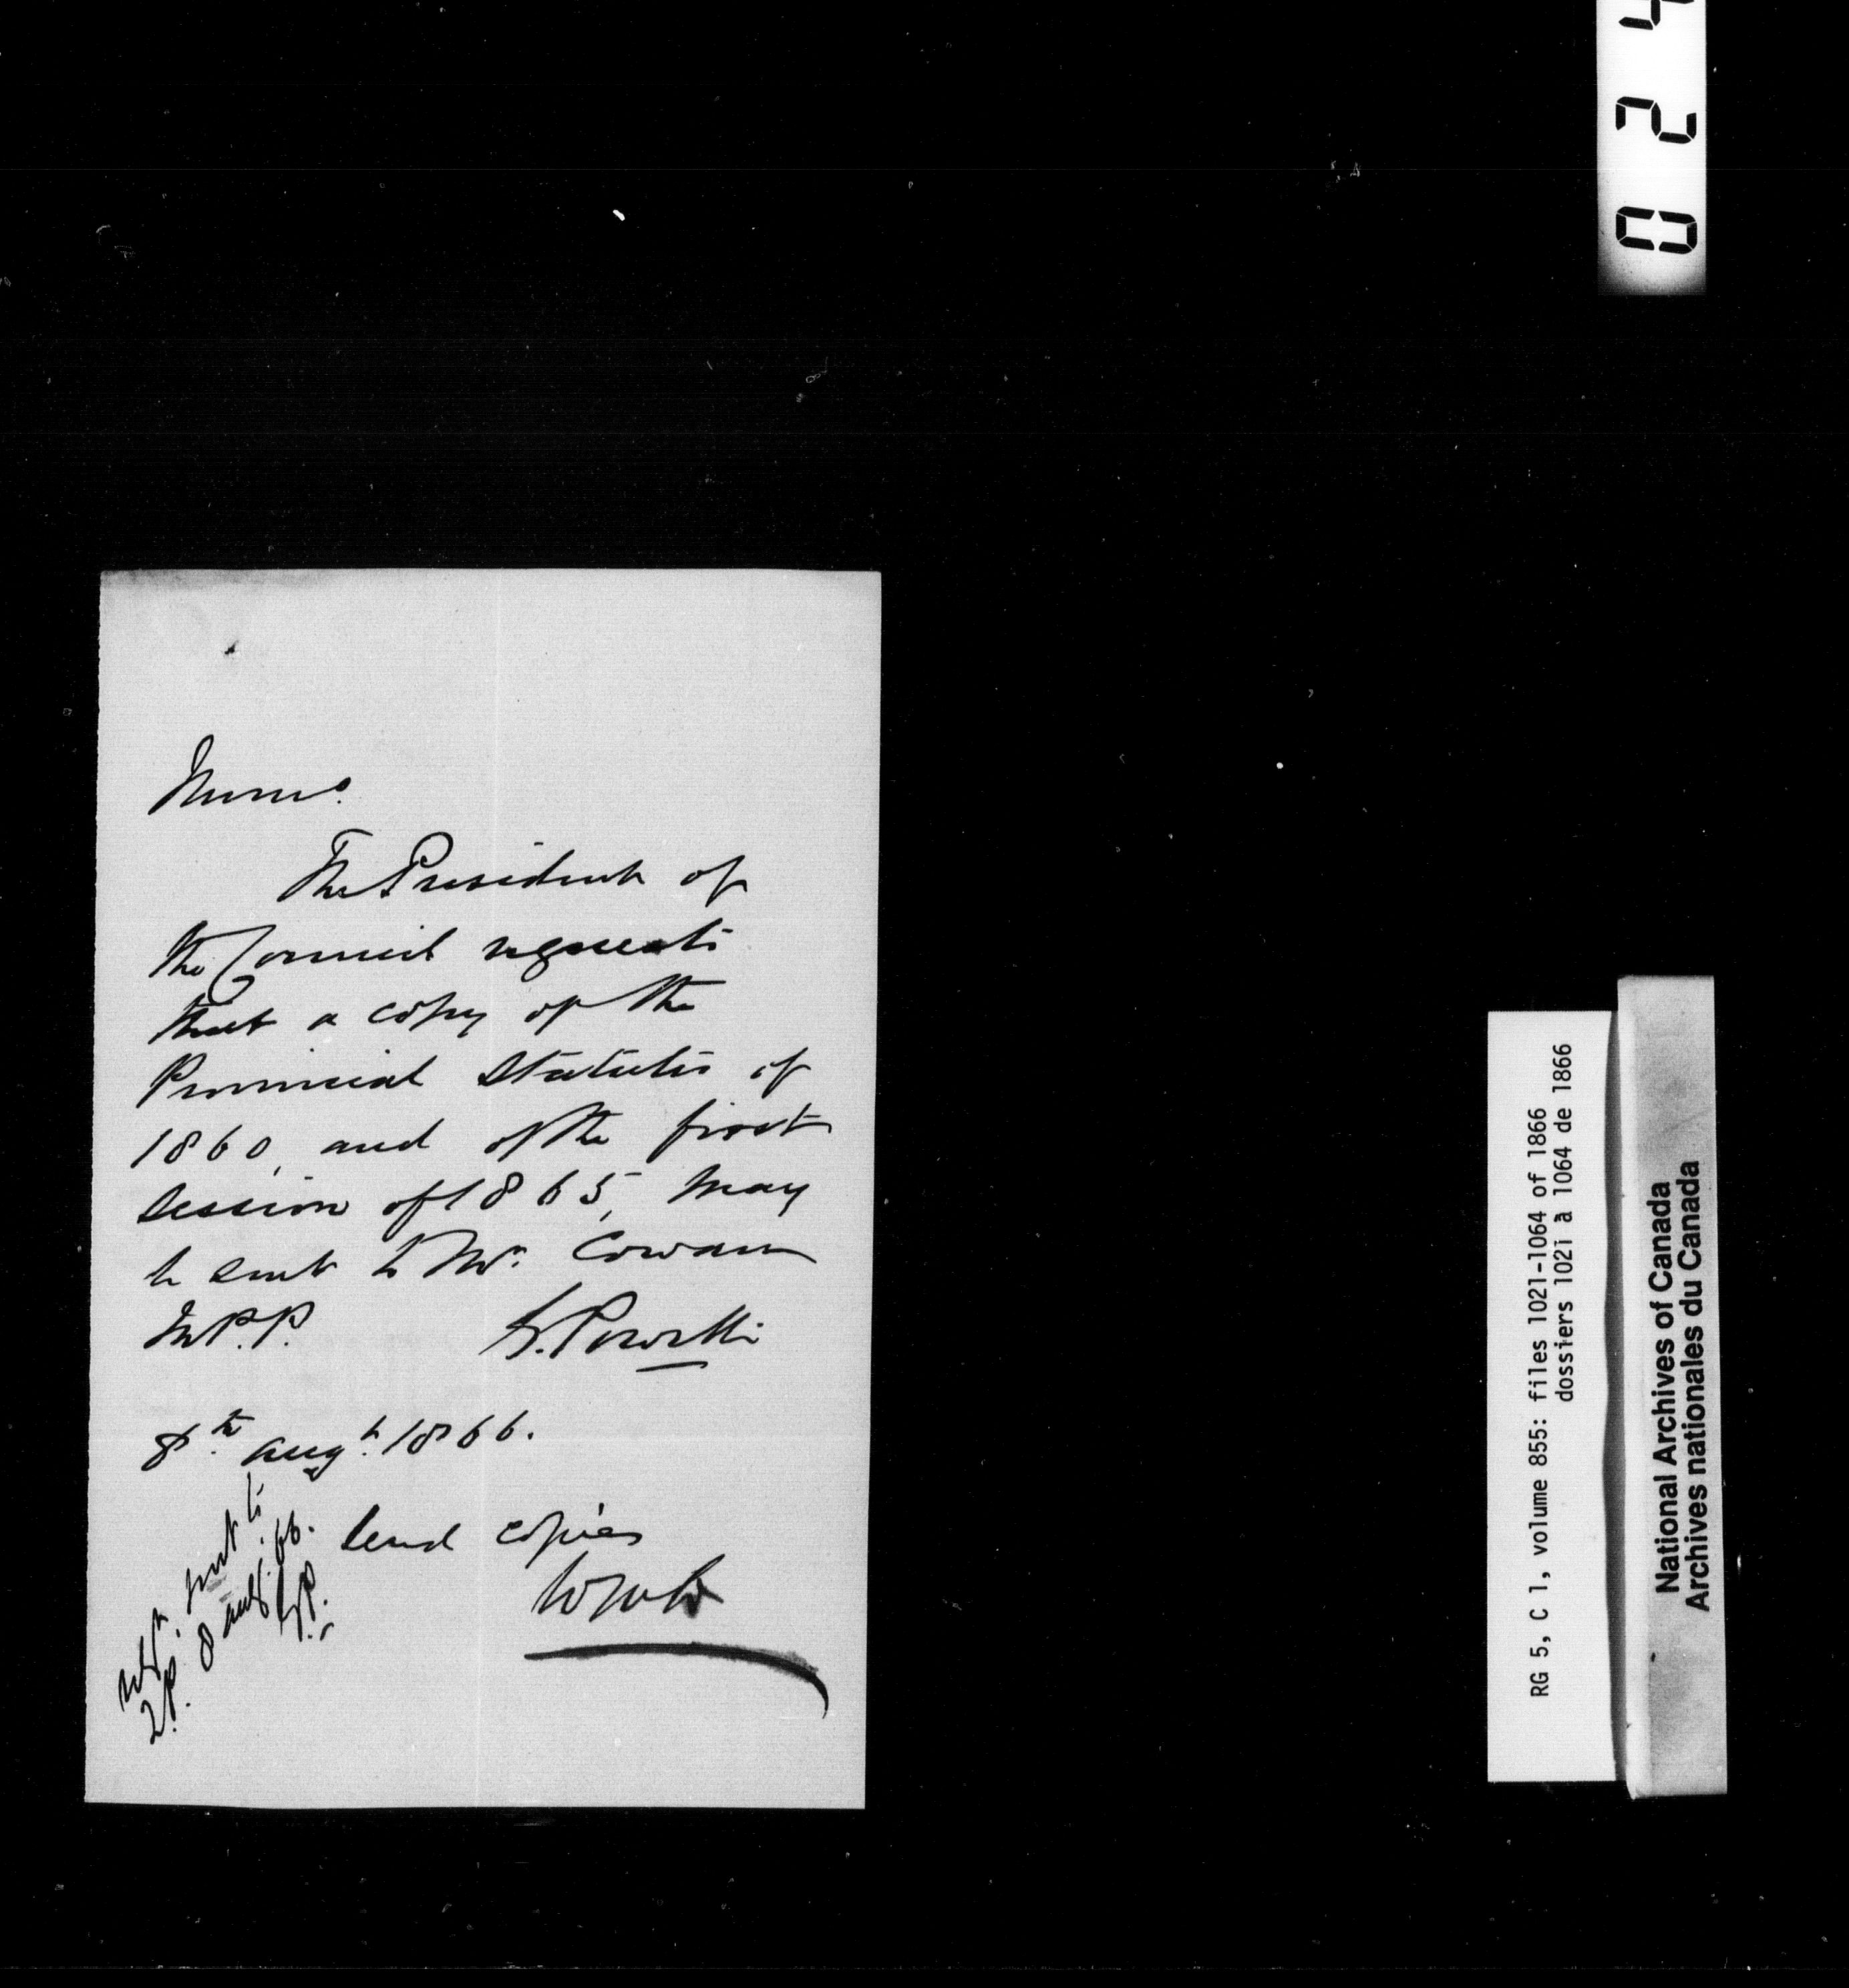 Memo.
The President of
the Council requests
that a copy of the
Provincial Statutes of
1860, and of the first
Session of 1865, may
be sent to Mr. Cowan
M.P.P. G. Powell
8th augt. 1866.
Send copies
sent to
8 augt. 66.
G.P.
0 2 4
RG 5, C 1, volume 855: files 1021-1064 of 1866
dossiers 1021 à 1064 de 1866
National Archives of Canada
Archives nationales du Canada